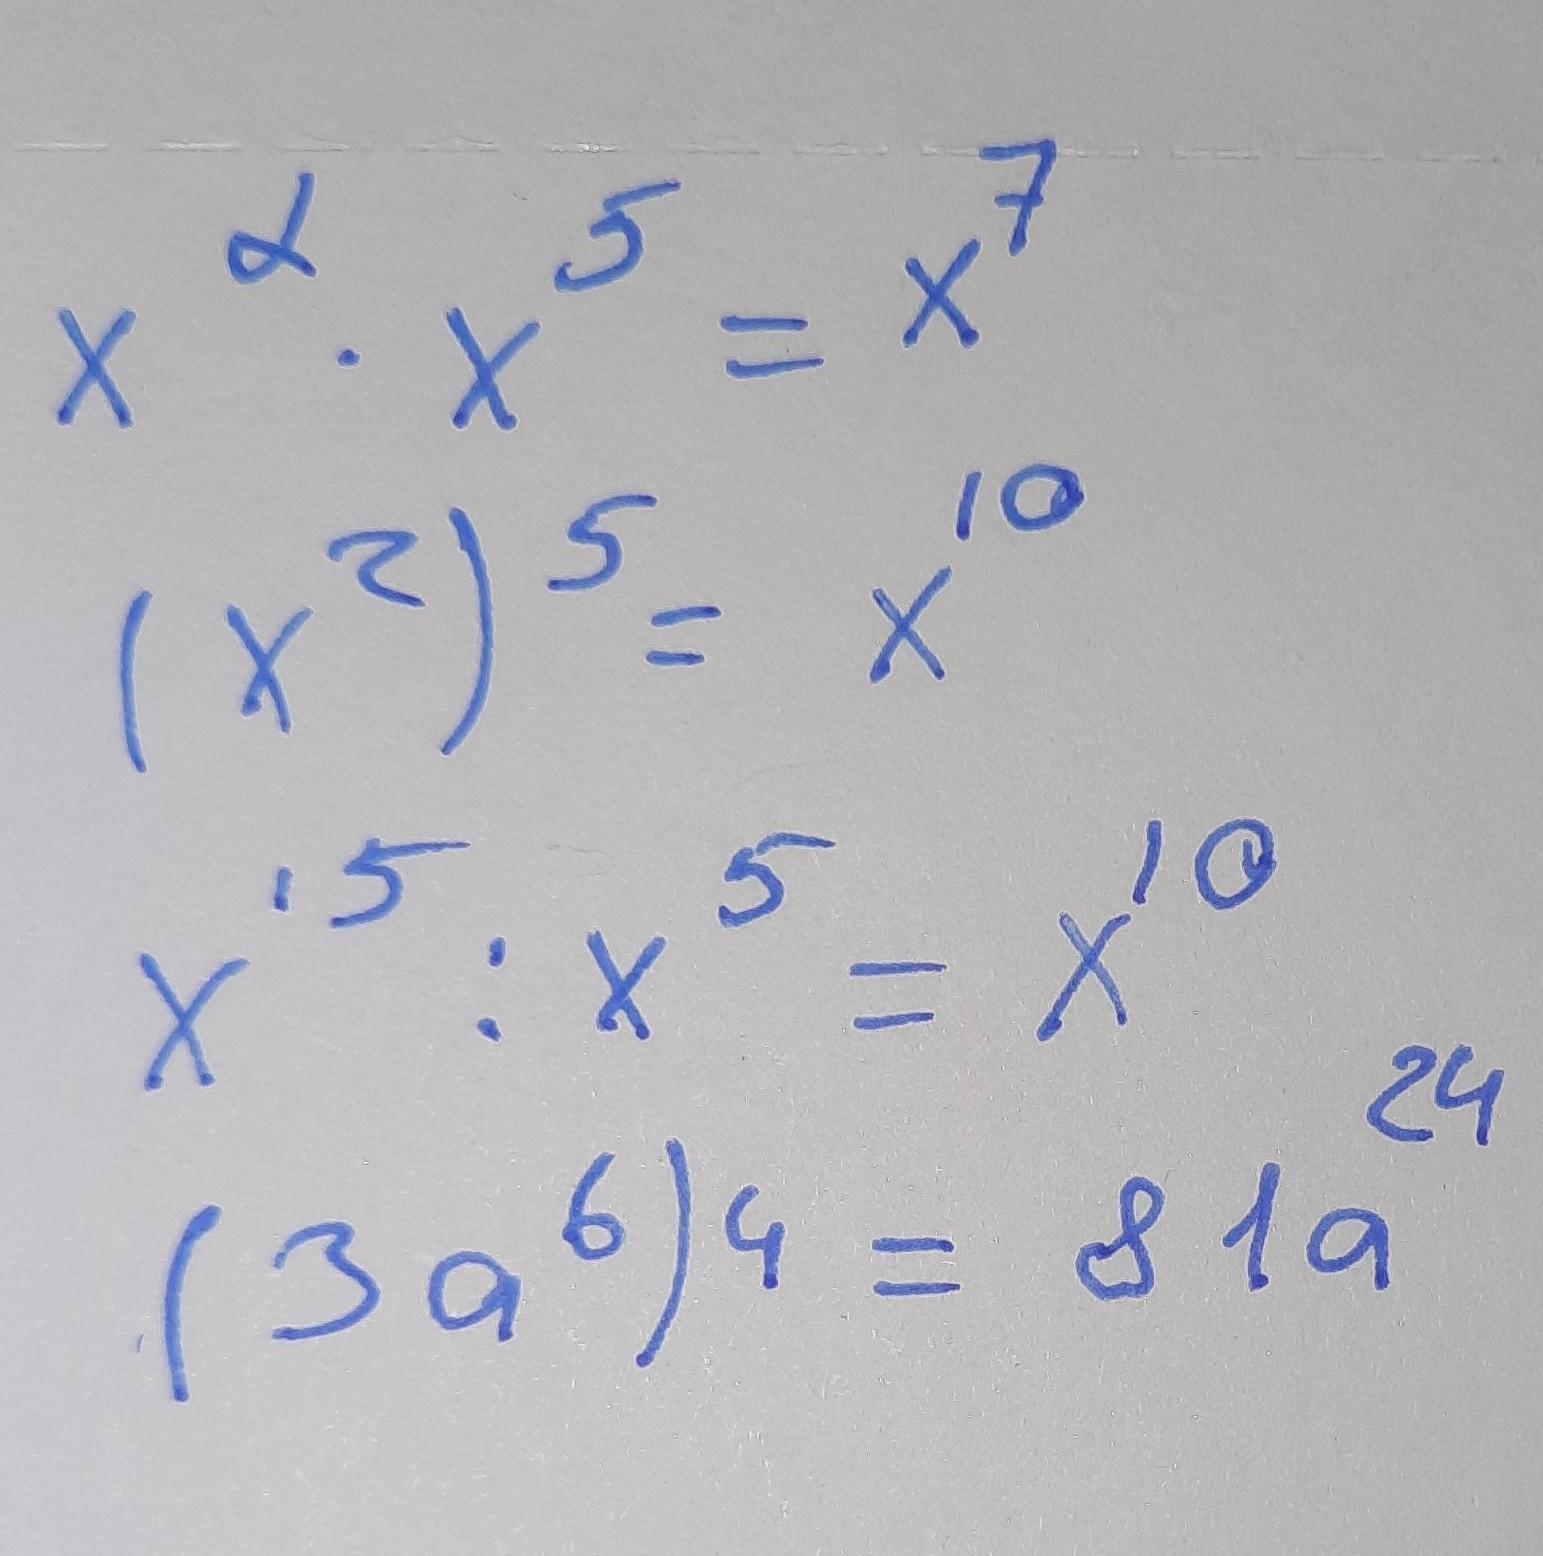 x² · x⁵ = x⁷
(x²)⁵ = x¹⁰
x¹⁵ : x⁵ = x¹⁰
(3a⁶)⁴ = 81a²⁴